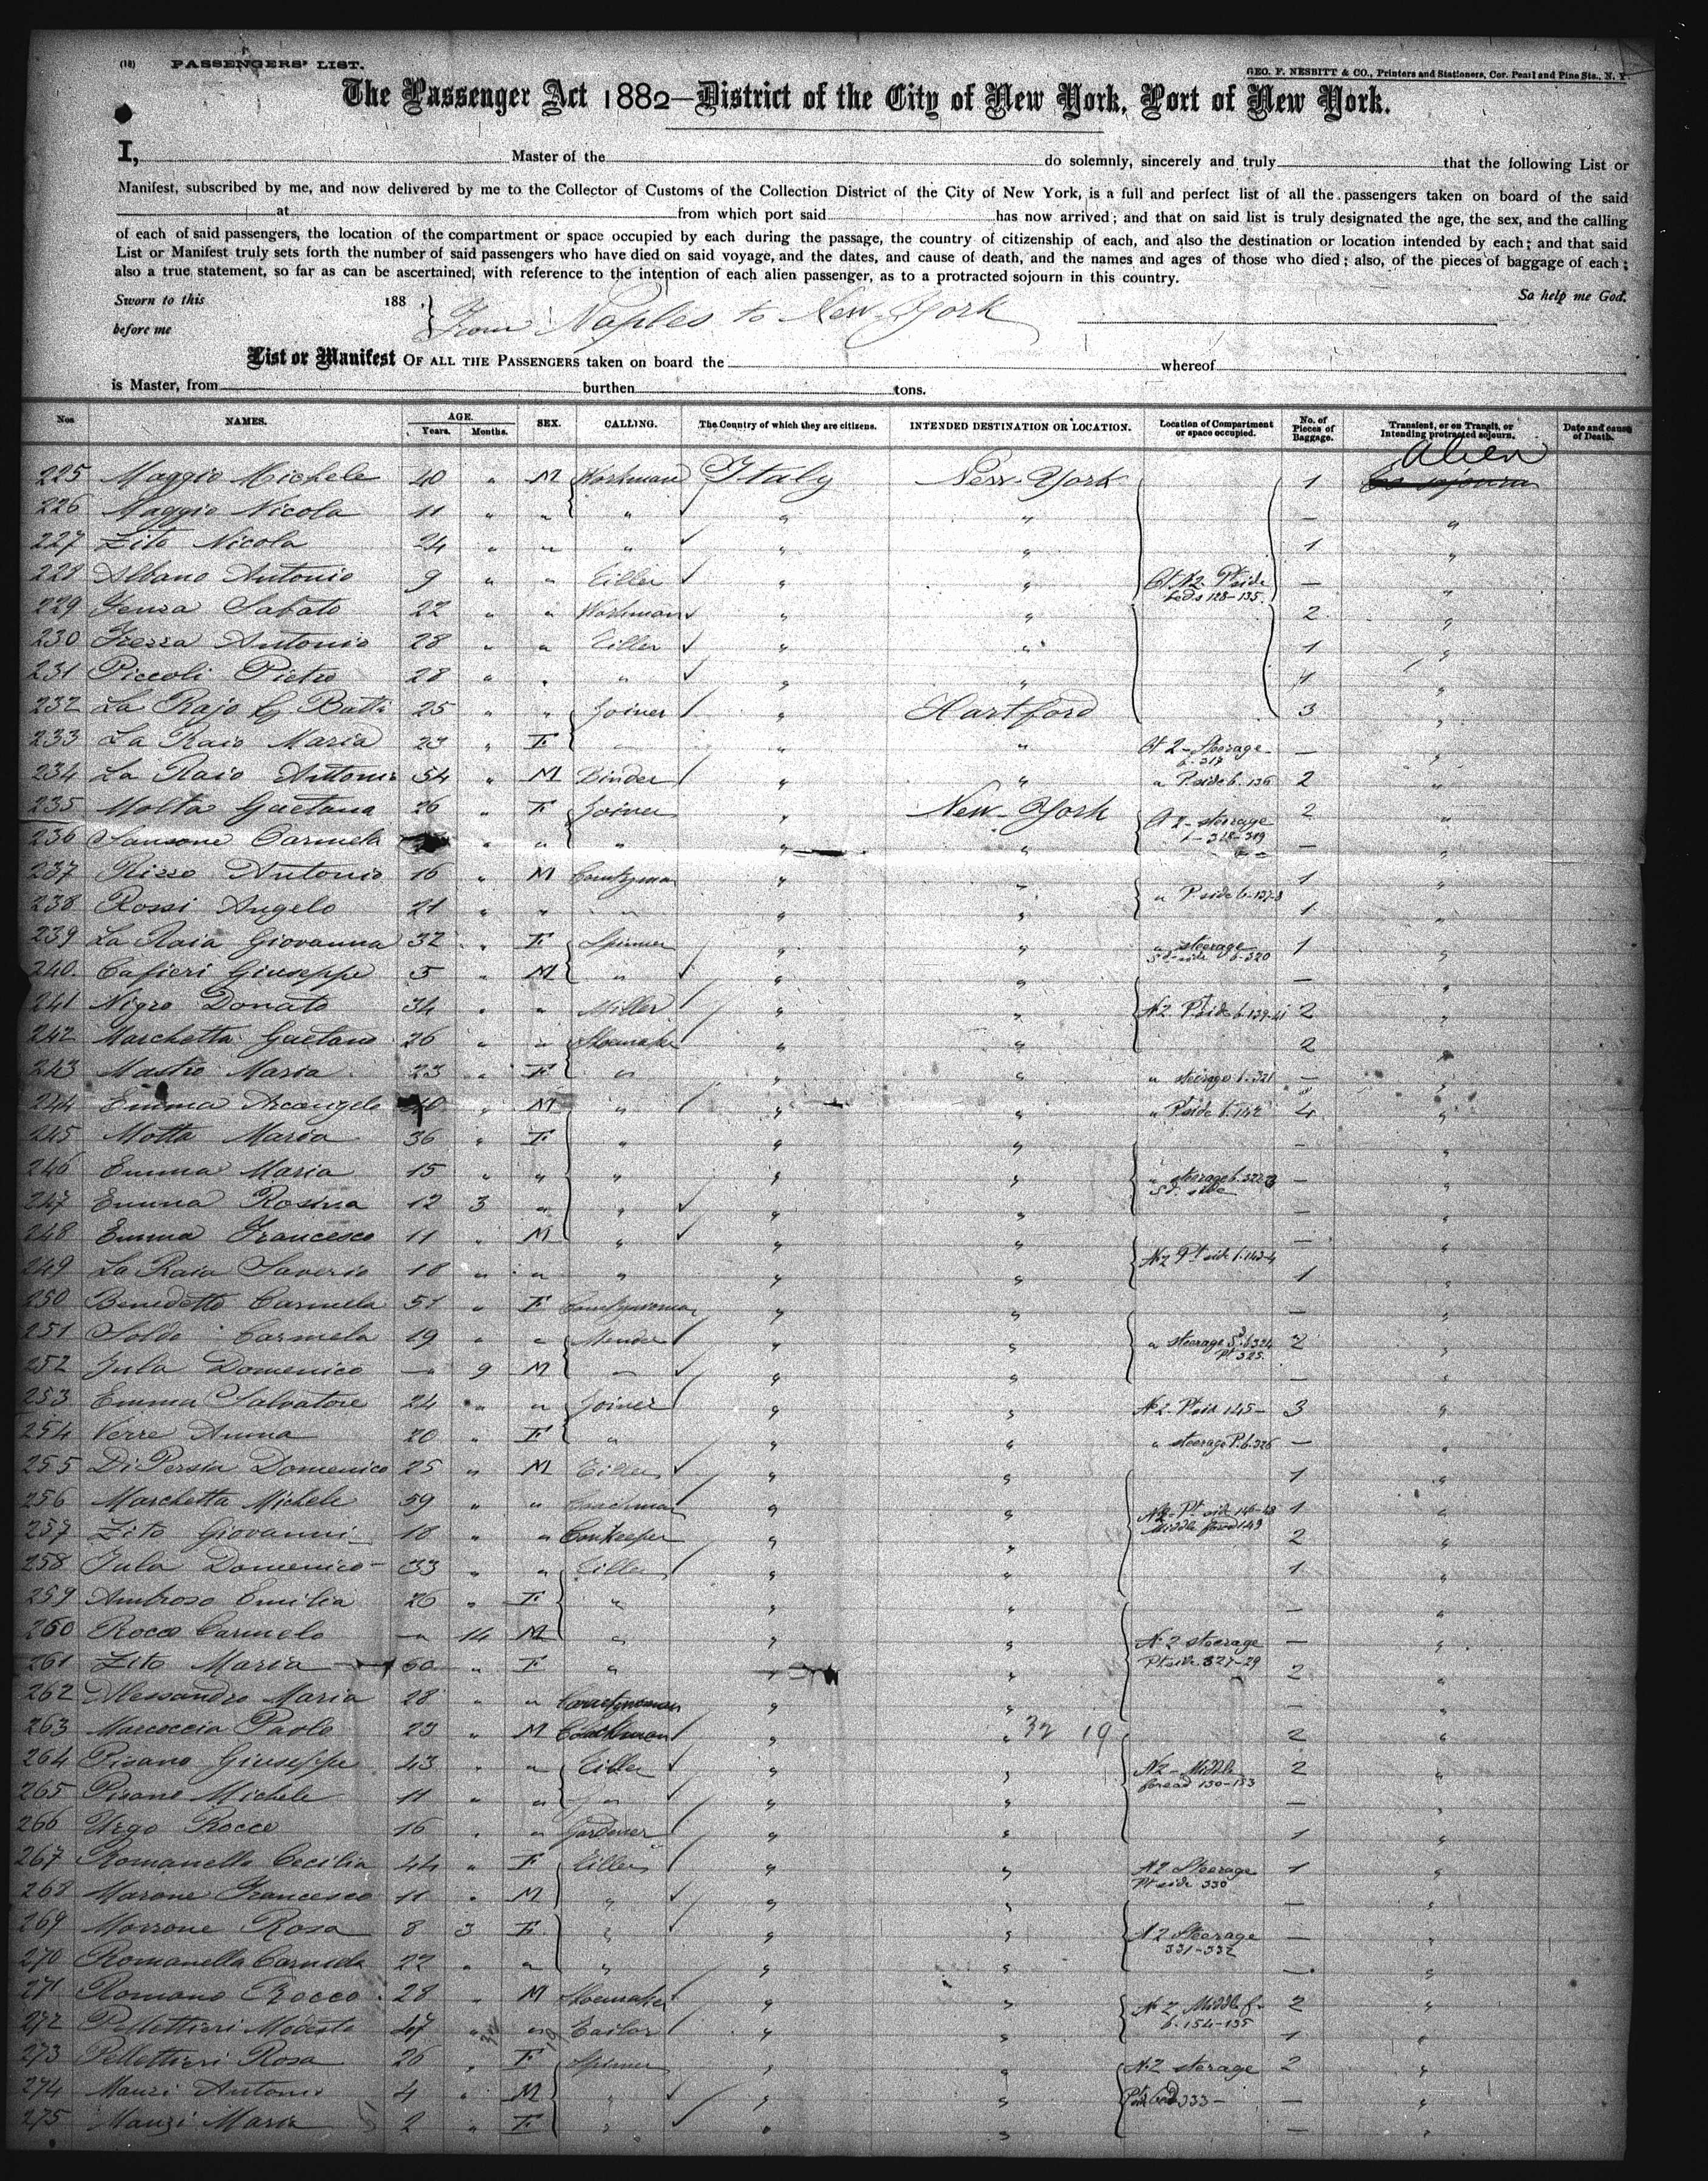 (18) PASSENGERS' LIST.
GEO. F. NESBITT & CO., Printers and Stationers, Cor. Pearl and Pine Sts., N. Y.
The Passenger Act 1882—District of the City of New York, Port of New York.
I, Master of the do solemnly, sincerely and truly that the following List or
Manifest, subscribed by me, and now delivered by me to the Collector of Customs of the Collection District of the City of New York, is a full and perfect list of all the passengers taken on board of the said
at from which port said has now arrived; and that on said list is truly designated the age, the sex, and the calling
of each of said passengers, the location of the compartment or space occupied by each during the passage, the country of citizenship of each, and also the destination or location intended by each; and that said
List or Manifest truly sets forth the number of said passengers who have died on said voyage, and the dates, and cause of death, and the names and ages of those who died; also, of the pieces of baggage of each;
also a true statement, so far as can be ascertained, with reference to the intention of each alien passenger, as to a protracted sojourn in this country.
Sworn to this 188 . So help me God.
before me From Naples to New-York
List or Manifest OF ALL THE PASSENGERS taken on board the whereof
is Master, from burthen tons.
Nos NAMES. AGE. Years. Months. SEX. CALLING. The Country of which they are citizens. INTENDED DESTINATION OR LOCATION. Location of Compartment or space occupied. No. of Pieces of Baggage. Transient, or on Transit, or Intending protracted sojourn. Date and cause of Death.
Alien
225 Maggio Michele 40 " M Workman Italy New-York 1
226 Maggio Nicola 11 " " " " " — "
227 Zito Nicola 24 " " " " " 1 "
228 Albano Antonio 9 " " Tiller " " Ct. N2. Pt side beds 128-135 — "
229 Sabato 22 " " Workman " " 2 "
230 Frezza Antonio 28 " " Tiller " " 1 "
231 Piccoli Pietro 28 " " " " " "
232 La Rajo G Batti 25 " " Joiner " Hartford 3 "
233 La Raio Maria 23 " F " " " Ct 2 - Steerage b. 317 — "
234 La Raio Antonio 54 " M Binder " " " P. side b. 136 2 "
235 Molta Gaetana 26 " F Joiner " New-York Ct 2 - steerage b - 318-319 2 "
236 Sansone Carmela " " " " " — "
237 Rizzo Antonio 16 " M Countryman " " " P side b-137-8 1 "
238 Rossi Angelo 21 " " " " " 1 "
239 La Raia Giovanna 32 " F Spinner " " " steerage Sd-side b-320 1 "
240. Cafieri Giuseppe 5 " M " " " — "
241 Nigro Donato 34 " " Miller " " N2 Pt side b. 139-41 2 "
242 Marchetta Gaetano 26 " " Shoemaker " " 2 "
243 Mastro Maria 23 " F " " " " steerage b. 321 — "
244 Emma Arcangelo 40 " M " " " " Pt side b. 142 4 "
245 Motta Maria 36 " F " " " — "
246 Emma Maria 15 " " " " " " steerage b. 322-3 Sd. side — "
247 Emma Rosina 12 3 " " " " — "
248 Emma Francesco 11 " M " " " — "
249 La Raia Saverio 18 " " " " " N2 Pt side b. 143-4 1 "
250 Benedetto Carmela 51 " F Countrywoman " " — "
251 Soldo Carmela 19 " " " " " steerage Sd. b 324 Pt 325. 2 "
252 Jula Domenico — 9 M " " " — "
253 Emma Salvatore 24 " " Joiner " " N2. Pt side 145- 3 "
254 Verre Anna 20 " F " " " " steerage P. b. 326 — "
255 Di Persia Domenico 25 " M Tiller " " 1 "
256 Marchetta Michele 59 " " Coachman " " N2- Pt side 146-48 Middle foread 149 1 "
257 Zito Giovanni 18 " " " " 2 "
258 Jula Domenico 33 " " Tiller " " 1 "
259 Ambroso Emilia 26 " F " " " — "
260 Rocco Carmelo — 14 M " " " N 2 steerage Pt side. 327-29 — "
261 Zito Maria 60 " F " " " 2 "
262 Alessandro Maria 28 " " Countrywoman " " — "
263 Marcoccia Paolo 23 " M Coachman " " 32 19 2 "
264 Pisano Giuseppe 43 " " Tiller " " N2 - Middle foread 150-153 2 "
265 Pisano Michele 11 " " " " " — "
266 Urgo Rocco 16 " " Gardener " " 1 "
267 Romanella Cecilia 44 " F Tiller " " N2 Steerage Pt side 330 1 "
268 Marone Francesco 11 " M " " " — "
269 Morrone Rosa 8 3 F " " " N2 Steerage 331-332 — "
270 Romanella Carmela 22 " " " " " — "
271 Romano Rocco 28 " M Shoemaker " " N 2 Middle f. b. 154-155 2 "
272 Pellettieri Modesto 47 " " Tailor " " 1 "
273 Pellettieri Rosa 26 " F Spinner " " N2 sterage 2 "
274 Manzi Antonio 4 " M " " " 333 — — "
275 Manzi Maria 2 " F " " " — "